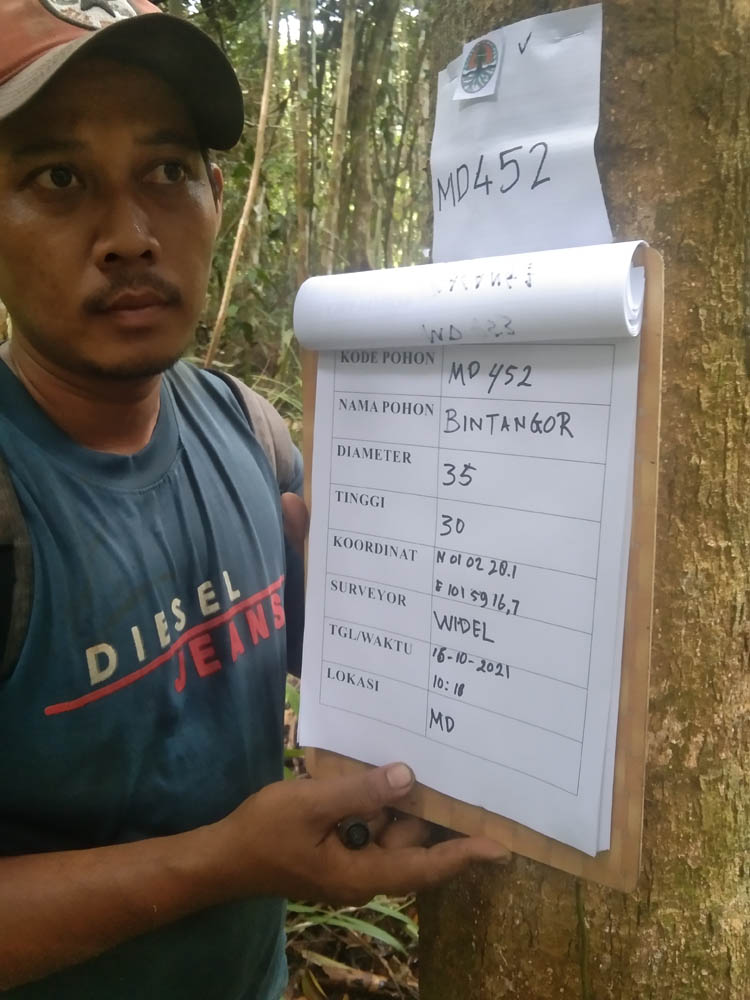 MD452
KODE POHON MD 452
NAMA POHON BINTANGOR
DIAMETER 35
TINGGI 30
KOORDINAT N 01 02 28.1
E 101 59 16,7
SURVEYOR WIDEL
TGL/WAKTU 16-10-2021
10:18
LOKASI MD
DIESEL
JEANS